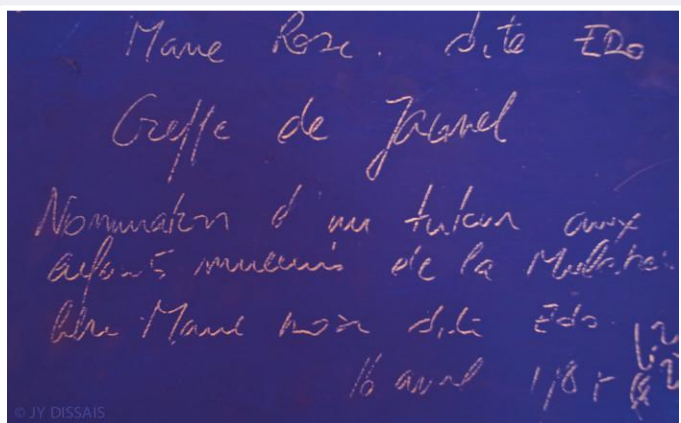 Marie Rose. dite EDo
Greffe de Jacmel
Nomination d'un tuteur aux
enfants mineurs de la Mulatre
libre Marie Rose dite Edo
16 avril
© JY DISSAIS